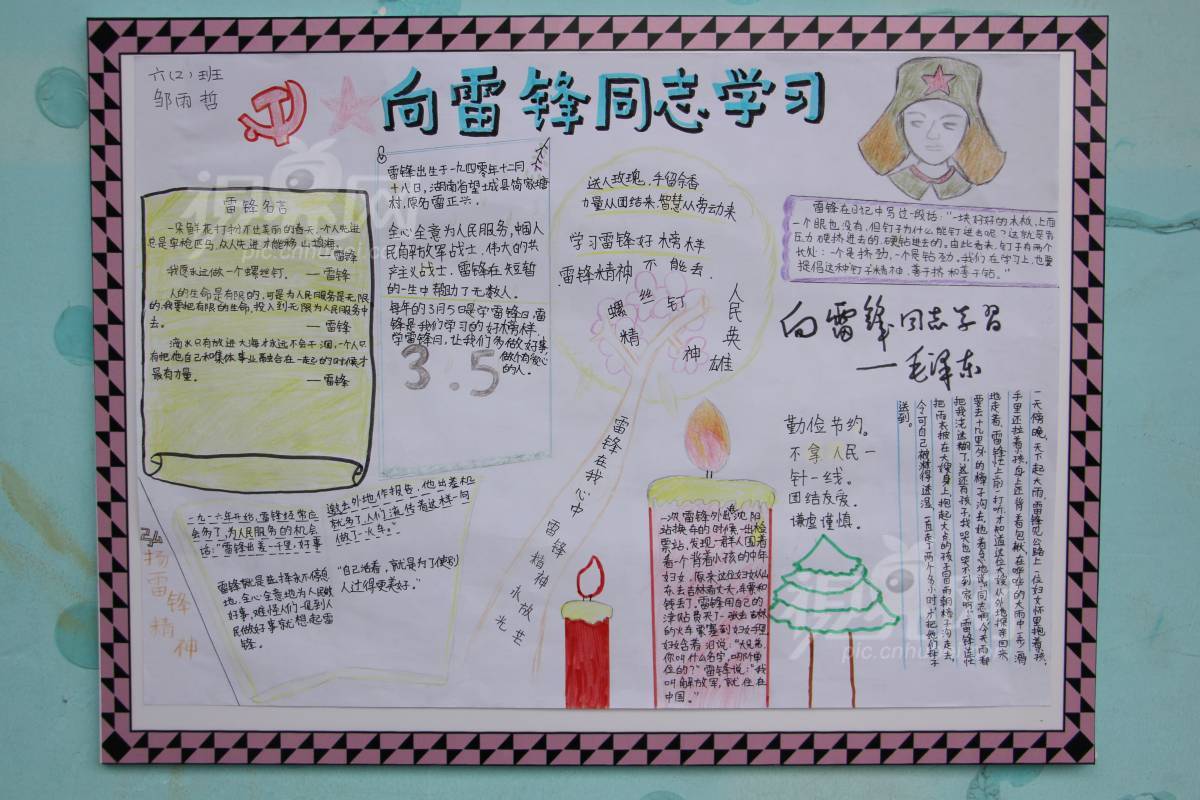 六(2)班
邹雨哲
向雷锋同志学习
雷锋名言
一朵鲜花打扮不出美丽的春天,一个人先进
总是单枪匹马,众人先进才能移山填海。
—雷锋
我愿永远做一个螺丝钉。 —雷锋
人的生命是有限的,可是为人民服务是无限
的,我要把有限的生命,投入到无限为人民服务中
去。 —雷锋
滴水只有放进大海才永远不会干涸,一个人只
有把他自己和集体事业融合在一起的时候才
最有力量。 —雷锋
雷锋出生于一九四零年十二月
十八日,湖南省望城县简家塘
村,原名雷正兴。
全心全意为人民服务,中国人
民解放军战士,伟大的共
产主义战士,雷锋在短暂
的一生中帮助了无数人。
每年的3月5日是学雷锋日,雷
锋是我们学习的好榜样,
学雷锋日,让我们多做好事,
做个有爱心
的人。
3.5
送人玫瑰,手留余香
力量从团结来,智慧从劳动来
学习雷锋好榜样
雷锋精神不能丢
螺丝钉
精神
人民英雄
雷锋在我心中
雷锋精神永放光芒
雷锋在日记中写过一段话:“一块好好的木板,上面
一个眼也没有,但钉子为什么能钉进去呢?这就是靠
压力硬挤进去的,硬钻进去的。由此看来,钉子有两个
长处:一个是挤劲,一个是钻劲,我们在学习上,也要
提倡这种‘钉子’精神,善于挤和善于钻。”
向雷锋同志学习
—毛泽东
勤俭节约。
不拿人民一
针一线。
团结友爱。
谦虚谨慎。
一天傍晚,天下起大雨,雷锋见公路上一位妇女怀里抱着孩,
手里还拉着孩,身上还背着包袱,在哗哗的大雨中一步一滑
地走着,雷锋忙上前一打听才知道这位大嫂从外地探亲回来,
要去十几里外的樟子沟去,她着急地说:“同志啊,今天雨都
把我浇迷糊了,这还有孩子,我哭也哭不到家啊。”雷锋连忙
把雨衣披在大嫂身上,抱起大点的孩子冒雨朝樟子沟走去,
今可自己被淋得透湿,一直走了两个多小时才把她们母子
送到。
一次雷锋外出在沈阳
站换车的时候,一出检
票站,发现一群人围着
看一个背着小孩的中年
妇女,原来这位妇女从山
东去吉林看丈夫,车票和
钱丢了。雷锋用自己的
津贴费买了一张去吉林
的火车票塞到妇女手里
妇女含着泪说:“大兄弟,
你叫什么名字,哪个单
位的?”雷锋说:“我
叫解放军,就住在
中国。”
弘扬雷锋精神
会多了,为人民服务的机会
话:“雷锋出差一千里,好事
邀去外地作报告,他出差机
就多了,人们流传着这样一句
做了一火车。”
雷锋就是这样永不停息
地,全心全意地为人民做
好事,难怪人们一见到人
民做好事就想起雷
锋。
“自己活着,就是为了使别
人过得更美好。”